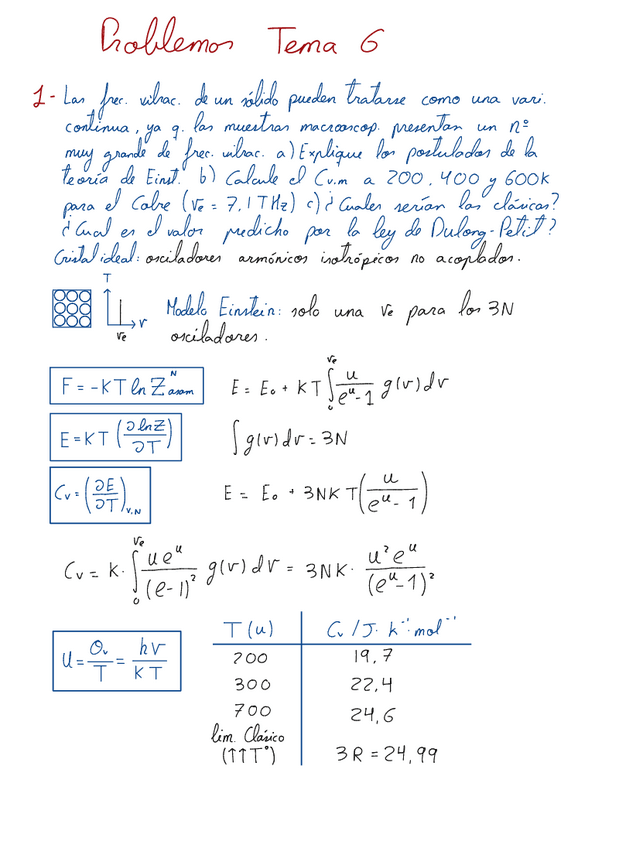 Problemas Tema 6
1- Las frec. vibrac. de un sólido pueden tratarse como una vari.
continua, ya q. las muestras macroscop. presentan un nº
muy grande de frec. vibrac. a) Explique los postulados de la
teoría de Einst. b) Calcule el Cv.m a 200, 400 y 600K
para el Cobre (νe = 7,1 THz) c) ¿Cuales serían las clásicas?
¿Cual es el valor predicho por la ley de Dulong-Petit?
Cristal ideal: osciladores armónicos isotrópicos no acoplados.
T
ν
νe
Modelo Einstein: solo una νe para los 3N
osciladores.
F = -KT ln Z^N_asam
E = E₀ + KT ∫₀^νe u/(e^u-1) g(ν)dν
E = KT (∂lnZ/∂T)
∫g(ν)dν = 3N
Cv = (∂E/∂T)_V,N
E = E₀ + 3NKT (u/(e^u-1))
Cv = K· ∫₀^νe ue^u/(e-1)² g(ν)dν = 3NK· u²e^u/(e^u-1)²
u = Θν/T = hν/KT
T(u) Cv /J·K⁻¹·mol⁻¹
200 19,7
300 22,4
700 24,6
lim. Clásico
(↑↑T°) 3R = 24,99